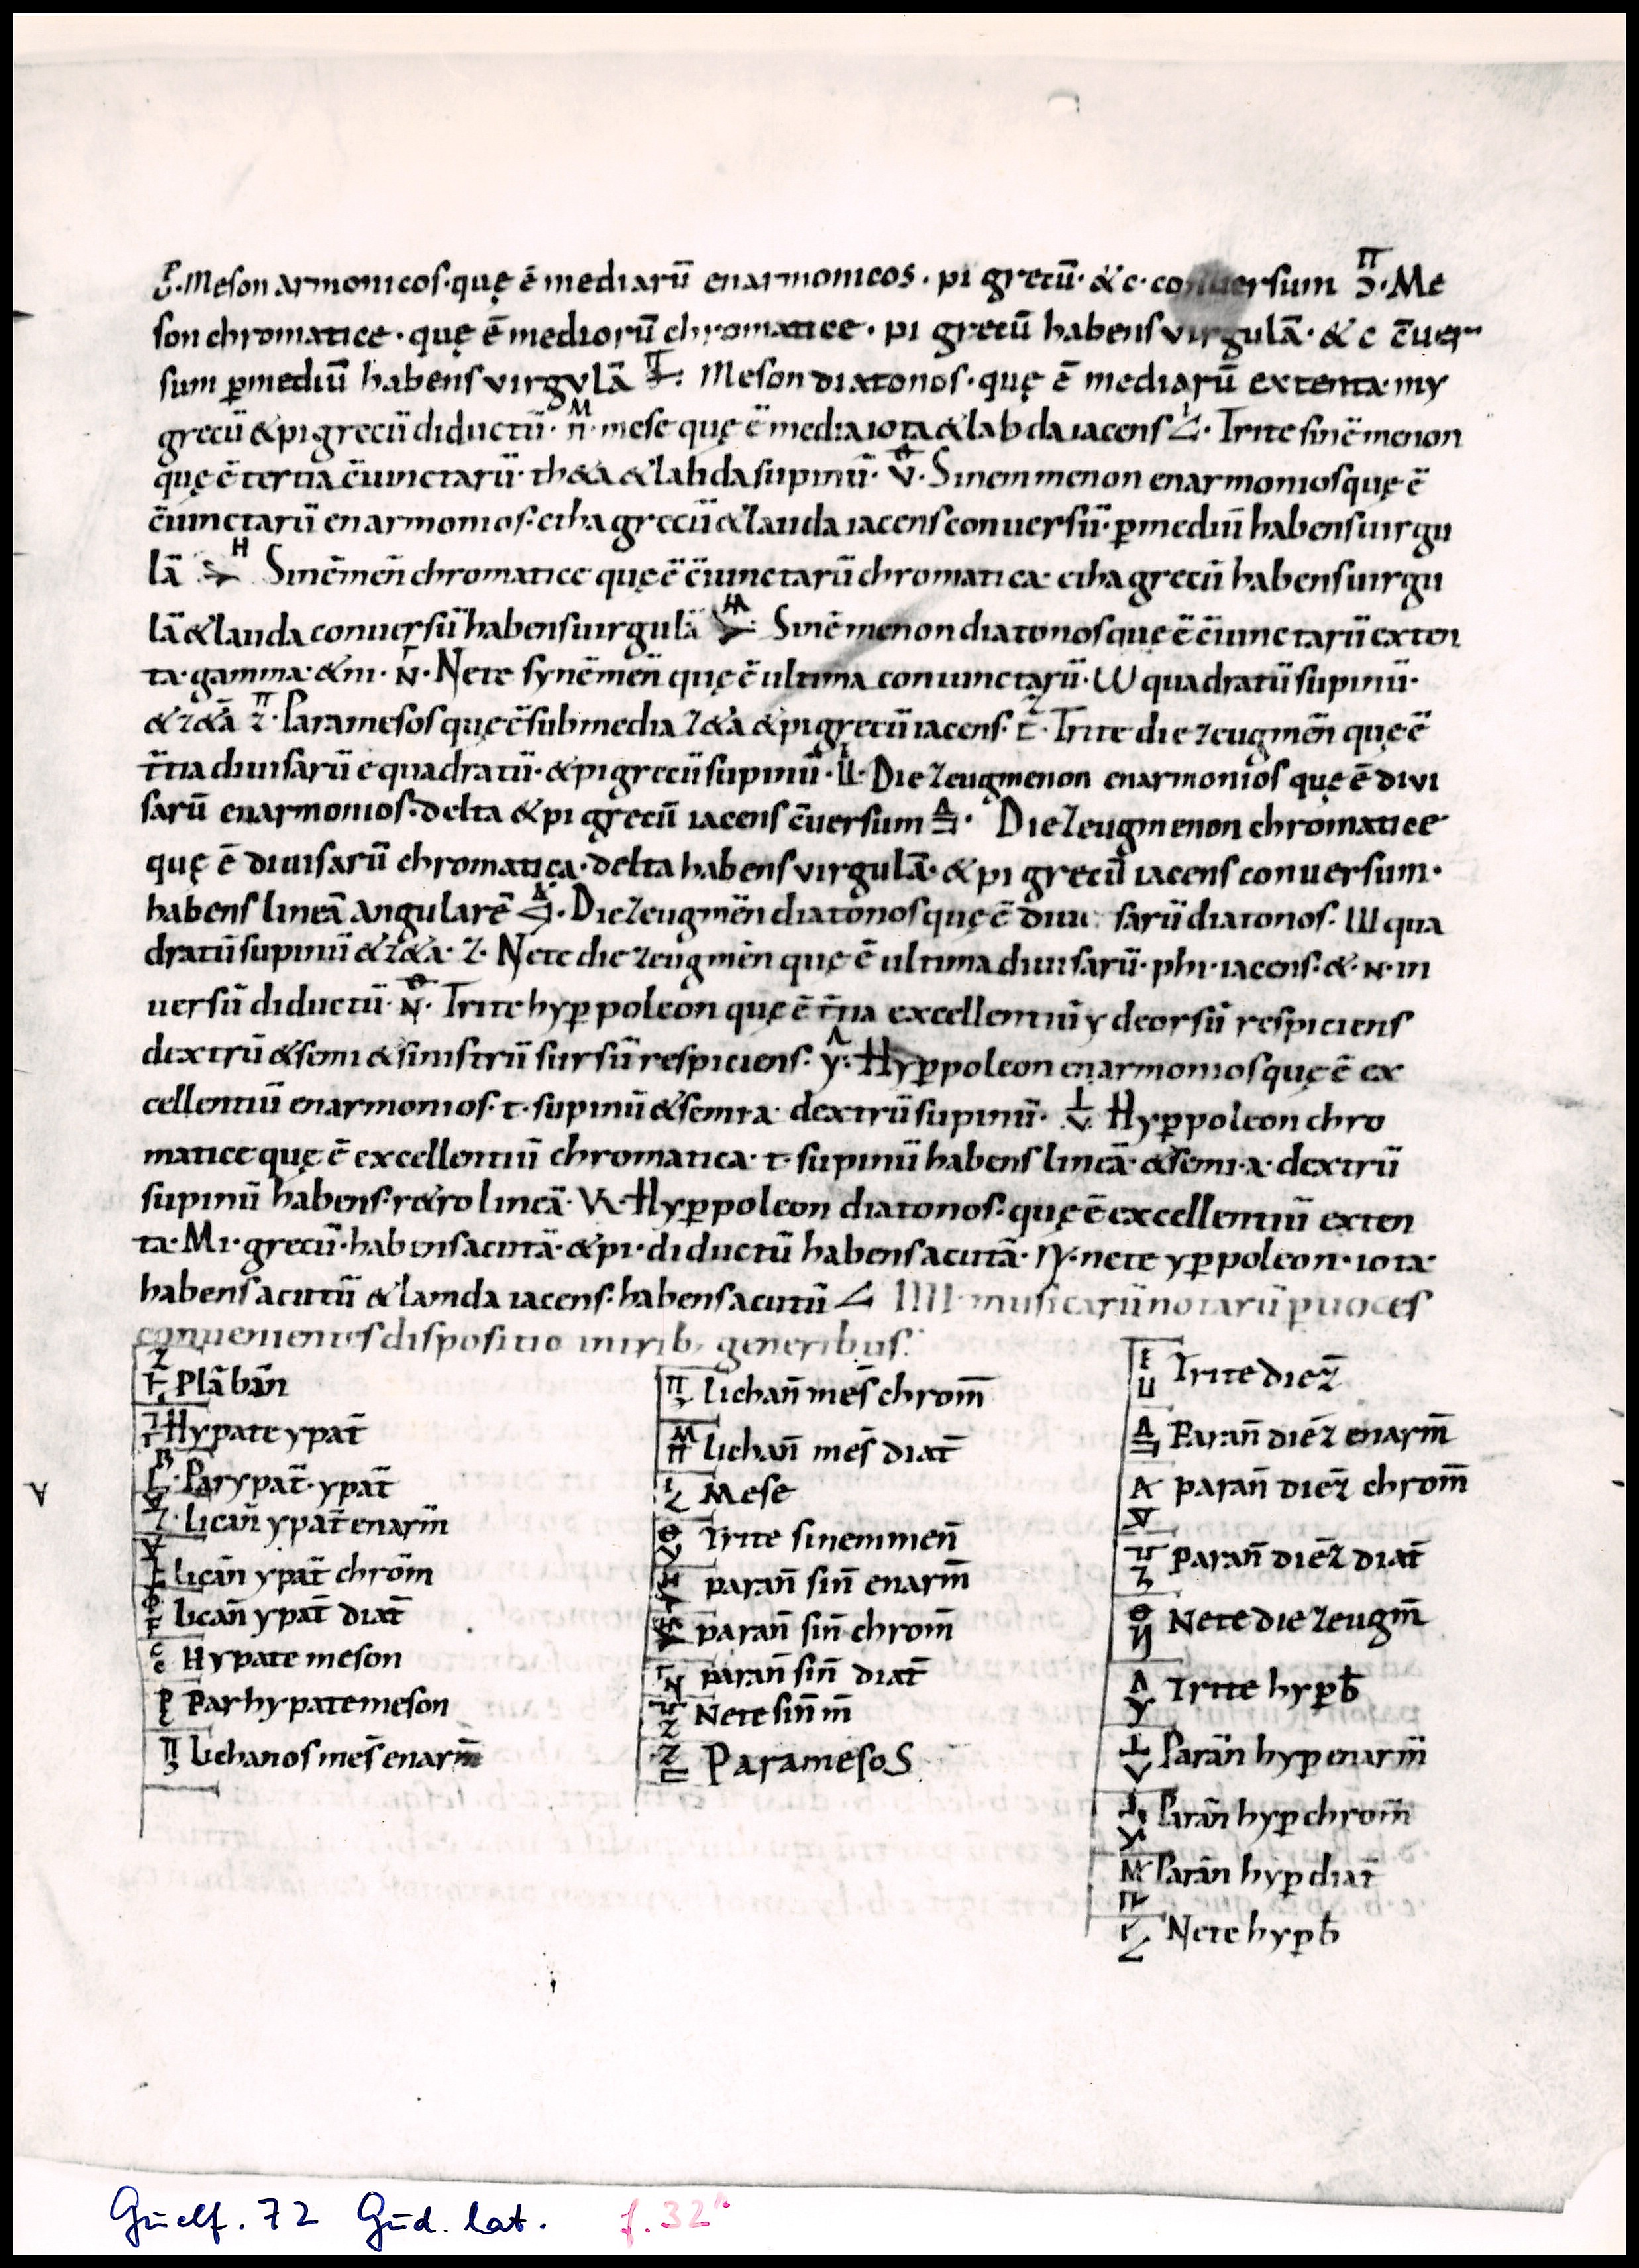 Meson armonicos· quę ē mediarū enarmonicos· pi grecū· &c· conuersum Π Ɔ· Me
son chromatice· quę ē mediorū chromatice· pi grecū habens virgulā· & c c̄uer
sum ꝑmediū habens virgvlā Meson diatonos· quę ē mediarū extenta· my
grecū & pi grecū diductū· M Π· mese quę ē media iota & labda iacens· Trite sinēmenon
quę ē tertia c̄iunctarū· th&a & labda supinū· Θ V· Sinemmenon enarmonios quę ē
c̄iunctarū enarmonios· etha grecū & lauda iacens conuersū· ꝑmediū habens uirgu
lā H Sinēmen̄ chromatice quę ē c̄iunctarū chromatica· etha grecū habens uirgu
lā & lauda conuersū habens uirgulā Sinēmenon diatonos quę ē c̄iunctarū exten
ta· gamma· & ni· Γ N· Nete synēmen̄ quę ē ultima coniunctarū· W quadratū supinū·
& z&ā Paramesos quę ē submedia z&a & pi grecū iacens· Trite diezeugmēn quę ē
t̄tia diuisarū e quadratū· & pi grecū supinū· Diezeugmenon enarmonios quę ē divi
sarū enarmonios· delta & pi grecū iacens c̄uersum Δ· Diezeugmenon chromatice
quę ē diuisarū chromatica· delta habens virgulā· & pi grecū iacens conuersum·
habens lineā angularē· Diezeugmēn diatonos quę ē diui sarū diatonos· W qua
dratū supinū & z&a· Z· Nete diezeugmēn quę ē ultima diuisarū· phi· iacens· &· N· in
uersū diductū· N· Trite hyꝑpoleon quę ē t̄tia excellentiū y deorsū respiciens
dextrū & semi & sinistrū sursū respiciens· Y· Hyꝑpoleon enarmonios quę ē ex
cellentiū enarmonios· t· supinū & semi·a· dextrū supinū· Hyꝑpoleon chro
matice quę ē excellentiū chromatica· t· supinū habens lineā· & semi·a· dextrū
supinū habens· r&ro lineā· Hyꝑpoleon diatonos· quę ē excellentiū exten
ta· Mi· grecū· habens acutā· & pi· diductū habens acutā· nete yꝑpoleon· iota·
habens acutū & lamda iacens· habens acutū IIII· musicarū notarū ꝑ uoces
conuenientes dispositio in trib; generibus·
Plā bān
Hypate ypat̄
Parypat̄· ypat̄
Lican̄ ypat̄ enarm̄
Lican̄ ypat̄ chrom̄
Lican̄ ypat̄ diat̄
Hypate meson
Parhypatemeson
Lichanos mes̄ enarm̄
Lichan̄ mes̄ chrom̄
Lichan̄ mes̄ diat̄
Mese
Trite sinemmen̄
paran̄ sin̄ enarm̄
paran̄ sin̄ chrom̄
paran̄ sin̄ diat̄
Nete sin̄ m̄
ParamesoS
Trite diez̄
Paran̄ diez̄ enarm̄
paran̄ diez̄ chrom̄
paran̄ diez̄ diat̄
Nete diezeugm̄
Trite hyꝑb̄
Paran̄ hyꝑ enarm̄
Paran̄ hyꝑ chrom̄
Paran̄ hyꝑ diat̄
Nete hyꝑb̄
Guelf. 72 Gud. lat. f. 32ᵃ